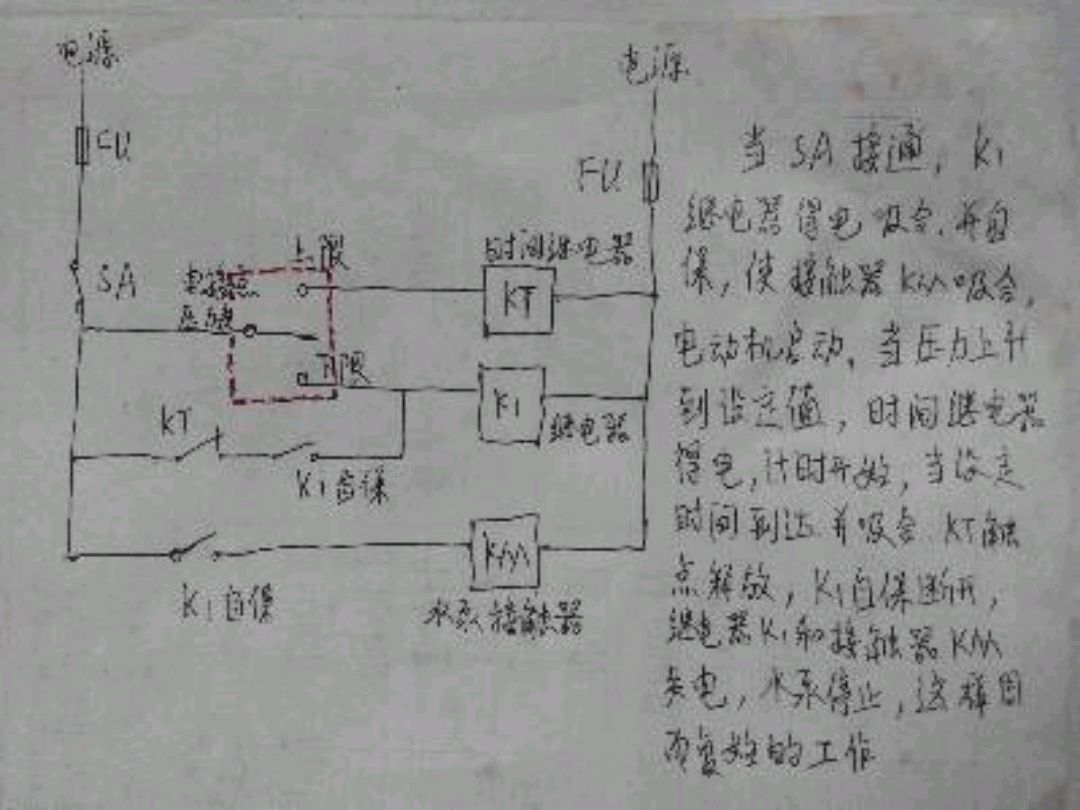 电源
电源
FU
FU
SA
上限
时间继电器
电接点
压力
KT
下限
K1
继电器
KT
K1自保
KM
K1自保
水泵接触器
当SA接通，K1
继电器得电吸合.并自
保，使接触器KM吸合，
电动机启动，当压力上升
到设定值，时间继电器
得电，计时开始，当设定
时间到达.并吸合.KT触
点解放，K1自保断开，
继电器K1和接触器KM
失电，水泵停止，这样周
而复始的工作